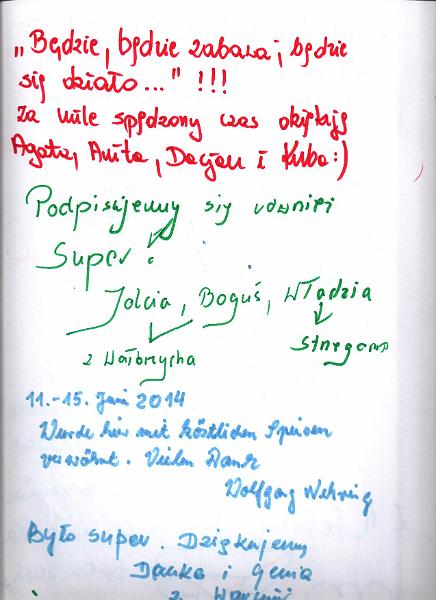 „Będzie, będzie zabawa; będzie
się działo..." !!!
Za mile spędzony czas dziękują
Agata, Anita, Dacjan i Kuba :)
Podpisujemy się również
Super :
Jolcia, Boguś, Władzia
z Wałbrzycha
Strzegom
11.-15. Juni 2014
Wurde hier mit köstlichen Speisen
verwöhnt. Vielen Dank
Wolfgang Wehring
Było super. Dziękujemy
Danka i Genia
z